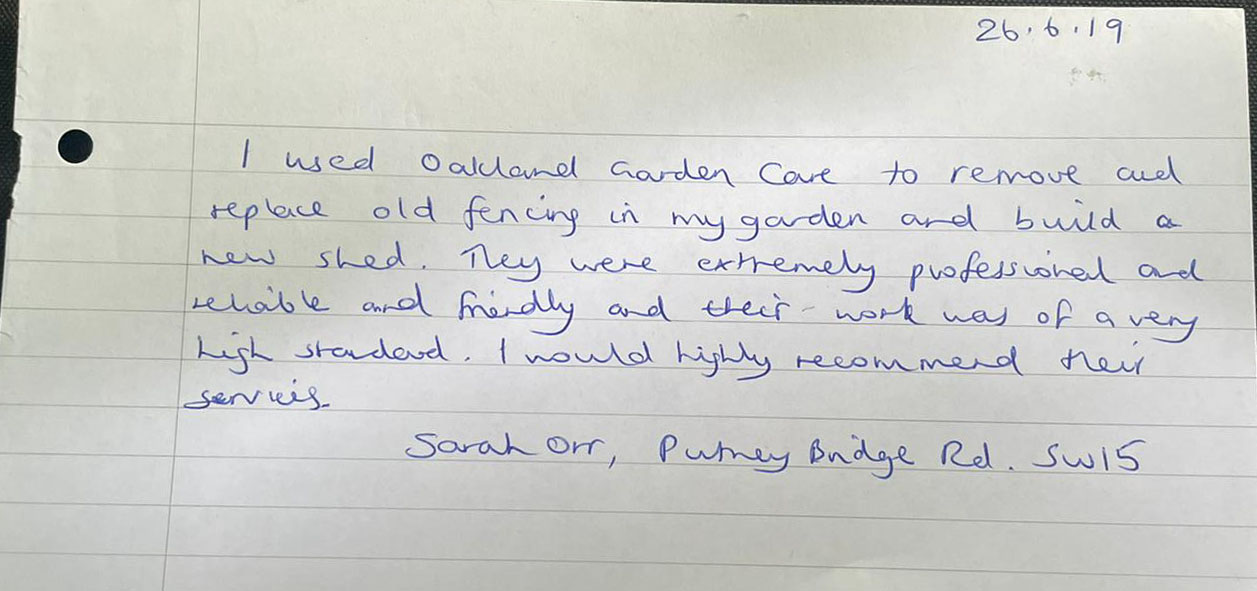 26.6.19
I used Oakland Garden Care to remove and
replace old fencing in my garden and build a
new shed. They were extremely professional and
reliable and friendly and their work was of a very
high standard. I would highly recommend their
servies.
Sarah Orr, Putney Bridge Rd. SW15